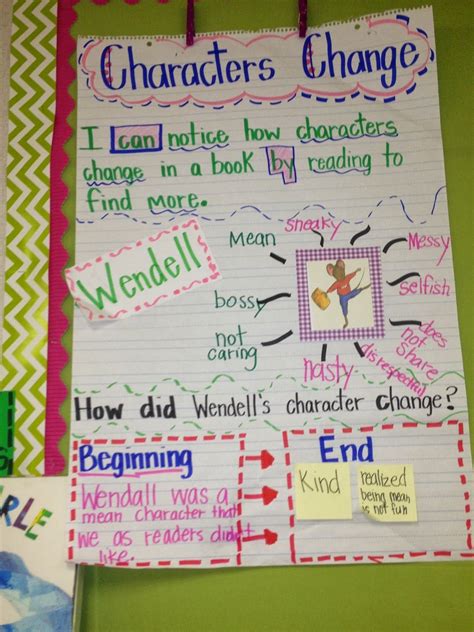 Characters Change
I can notice how characters
change in a book by reading to
find more.
Wendell
sneaky
Mean
Messy
selfish
bossy
does
not
share
not
caring
nasty
disrespectful
How did Wendell's character change?
Beginning
Wendall was a
mean character that
we as readers didn't
like.
End
Kind
realized
being mean
is not fun
RLE